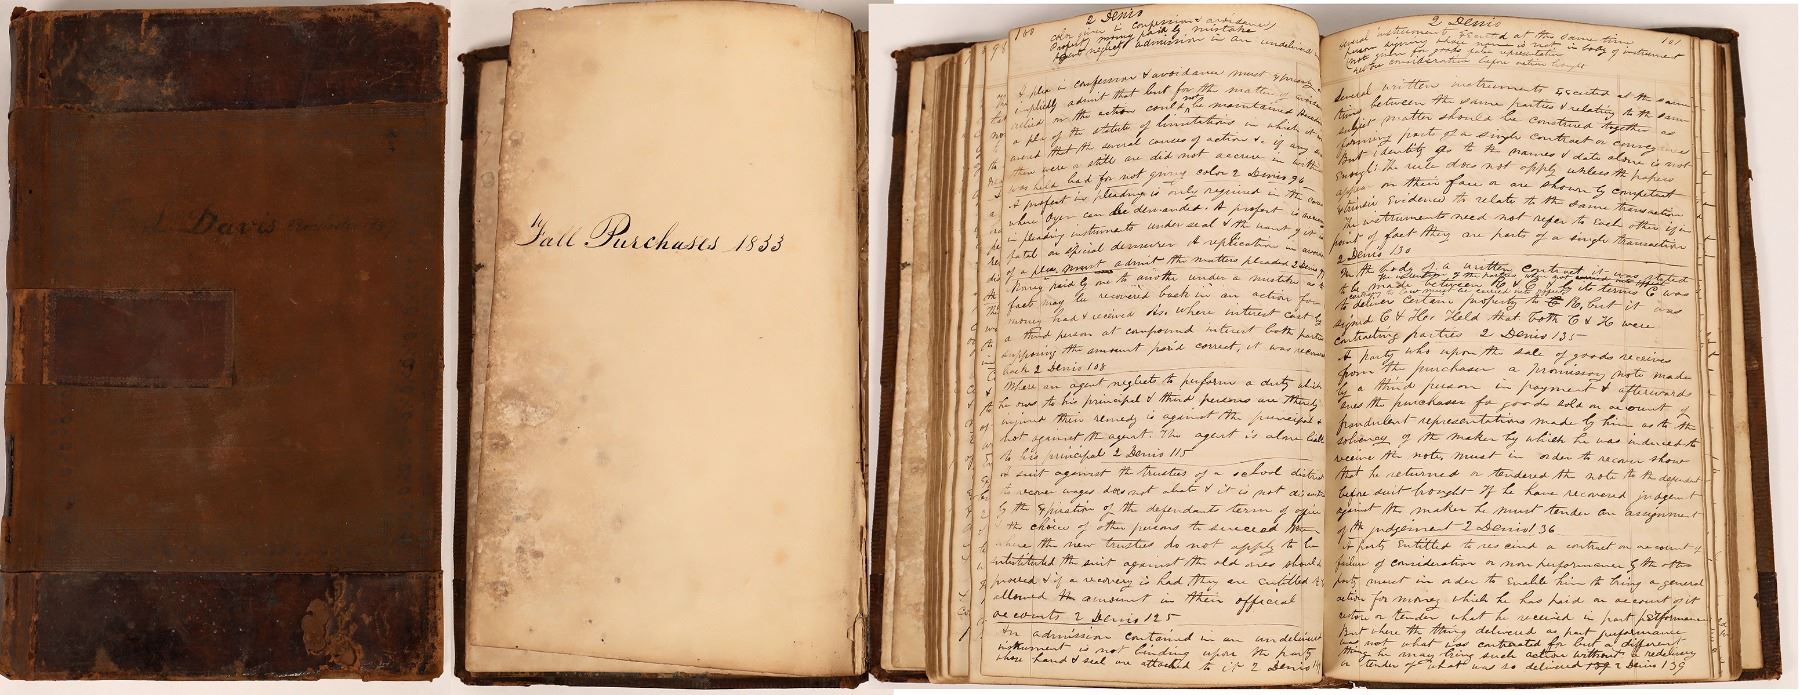 L Davis
Fall Purchases 1833
98
100
2 Denio
color given in confession & avoidance
Profert, money paid by mistake
agent neglect admission in an undelivered
A plea in confession & avoidance must
implicitly admit that but for the matter of
relied on the action could not be maintained
a plea of the statute of limitations in which it
averd that the several causes of action &c if any
there were or still are did not accrue in
was held bad for not giving color 2 Denio 96
A profert in pleading is only required in the
where Oyer can be demanded. A profert is
in pleading instruments under seal & the want of it is
on special demurrer A replication in
of a plea must admit the matters pleaded 2 Denio
Money paid by one to another under a mistake as to
facts may be recovered back in an action for
money had & received Also where interest cast by
a third person at compound interest both parties
supposing the amount paid correct, it was recovered
back 2 Denio 108
Where an agent neglects to perform a duty which
he owes to his principal & third persons are thereby
injured their remedy is against the principal &
not against the agent. The agent is alone liable
to his principal 2 Denio 115
A suit against the trustees of a school district
to recover wages does not abate & it is not
by the expiration of the defendants term of office
& the choice of other persons to succeed them
where the new trustees do not apply to be
substituted the suit against the old ones should
proceed & if a recovery is had they are entitled to be
allowed the amount in their official
accounts 2 Denio 125
An admission contained in an undelivered
instrument is not binding upon the party
whose hand & seal are attached to it 2 Denio
2 Denio
101
several instruments executed at the same time
person signing whose name is not in body of instrument
note given for goods false representation
restore consideration before action brought
Several written instruments executed at the same
time between the same parties & relating to the same
subject matter should be construed together as
forming part of a single contract or conveyance
But identity as to the names & date alone is not
enough. The rule does not apply unless the papers
appear on their face or are shown by competent
extrinsic Evidence to relate to the same transaction
The instruments need not refer to each other if in
point of fact they are parts of a single transaction
2 Denio 130
In the body of a written contract it was stated
to be made between R & C & by its terms C was
to deliver certain property to R, but it was
signed C & H. Held that both C & H were
contracting parties 2 Denio 135
A party who upon the sale of goods receives
from the purchaser a promissory note made
by a third person in payment & afterwards
sues the purchaser for goods sold on account of
fraudulent representations made by him as to the
solvency of the maker by which he was induced to
receive the note, must in order to recover show
that he returned or tendered the note to the defendant
before suit brought If he have recovered judgment
against the maker he must tender an assignment
of the judgement 2 Denio 136
A party Entitled to rescind a contract on account of
failure of consideration or non performance by the other
party must in order to Enable him to bring a general
action for money which he has paid on account of it
restore or tender what he received in part performance
But where the thing delivered as part performance
was not what was contracted for but a different
thing he may bring such action without a redelivery
or tender of what was so delivered 2 Denio 139